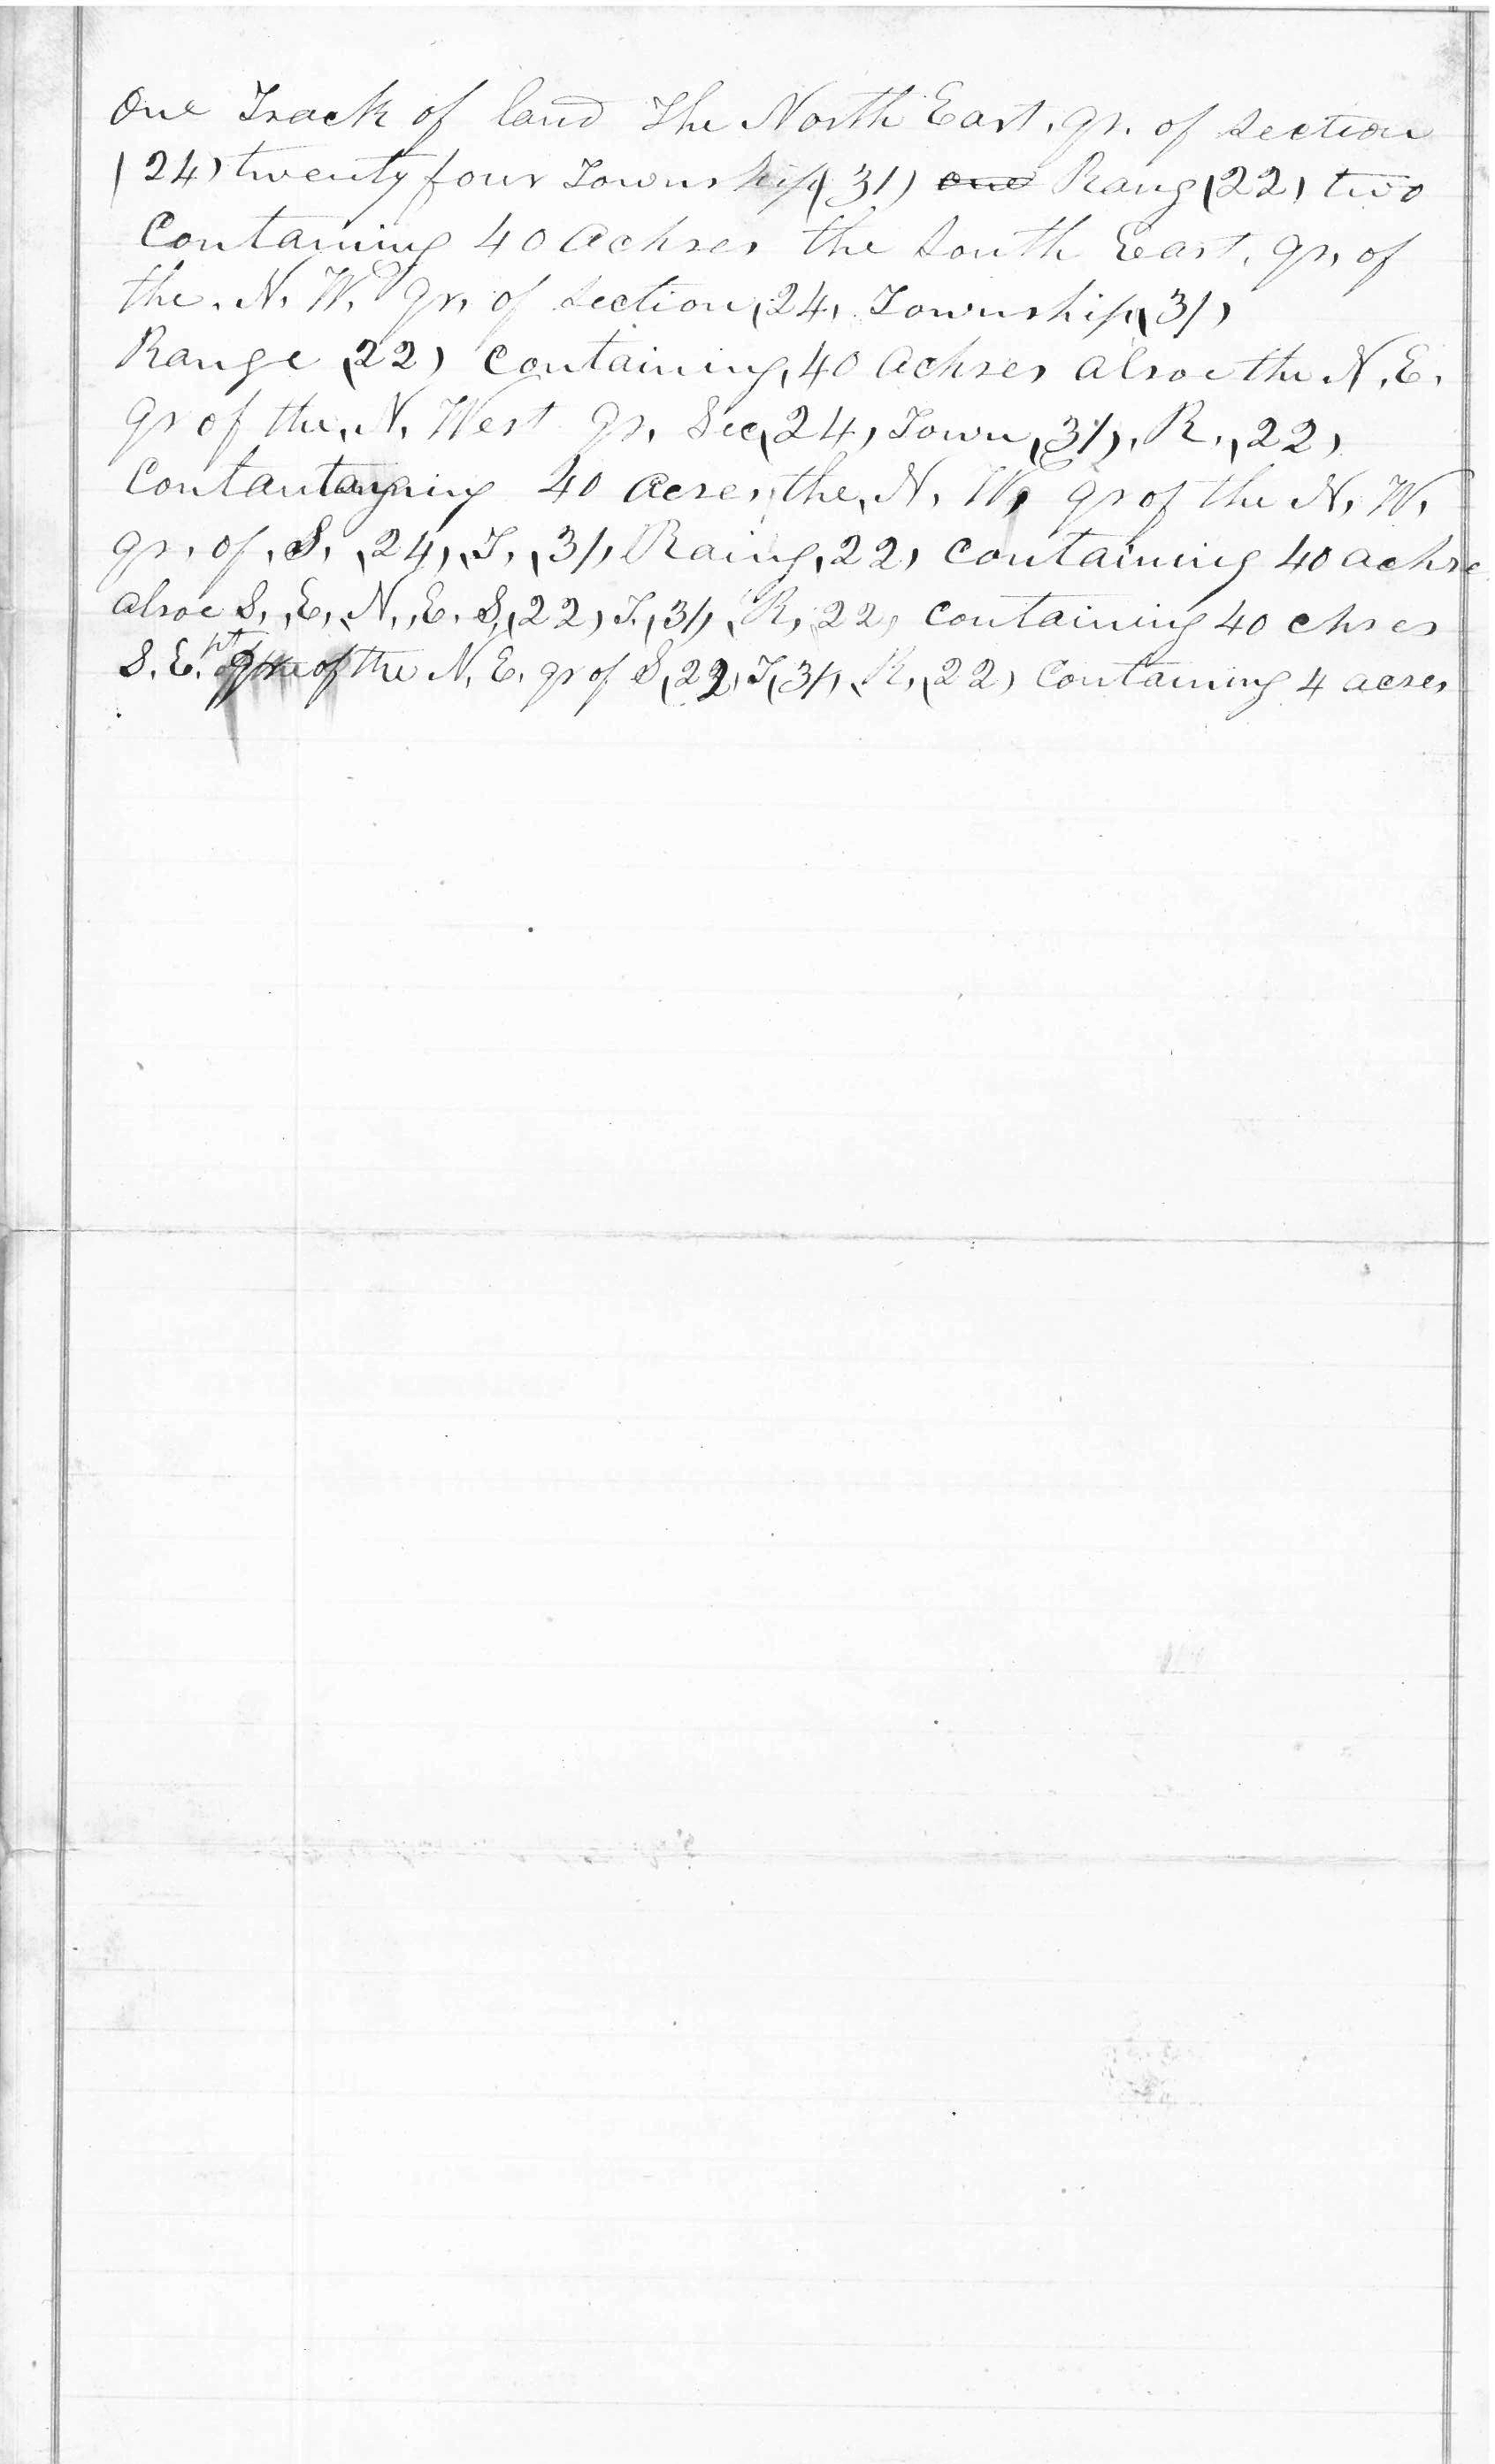 One Track of land The North East. qr. of section
(24) twenty four Township (31) one Rang (22) two
Containing 40 Achres the South East. qr. of
the. N. W. qr. of section (24) Township (31)
Range (22) containing 40 Achres alsoe the N. E.
qr of the N. West qr. Sec (24) Town (31) R. (22)
Containing 40 acres the N. W. qr of the N. W.
qr. of. S. (24) T. (31) Raing (22) containing 40 achre
alsoe S. E. N. E. S. (22) T. (31) R. 22) containing 40 chres
S. E. of the N. E. qr of S (22) T (31) R. (22) containing 4 acres